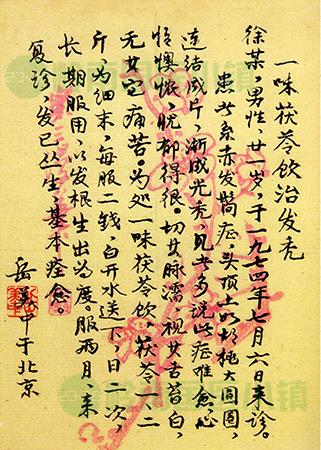 一味茯苓饮治发秃
徐某，男性，廿一岁，于一九七四年七月六日来诊。
患者系发症，头顶上如胡桃大圆圈，
连结成片，渐成光秃，见者多说此症难愈，心
情懊憹，忧郁得很。切其脉濡，视其舌苔白，
无其它痛苦。为处一味茯苓饮，茯苓一、二
斤，为细末，每服二钱，白开水送下，日二次，
长期服用，以发根生出为度。服两月，来
复诊，发已丛生，基本痊愈。
岳美中于北京